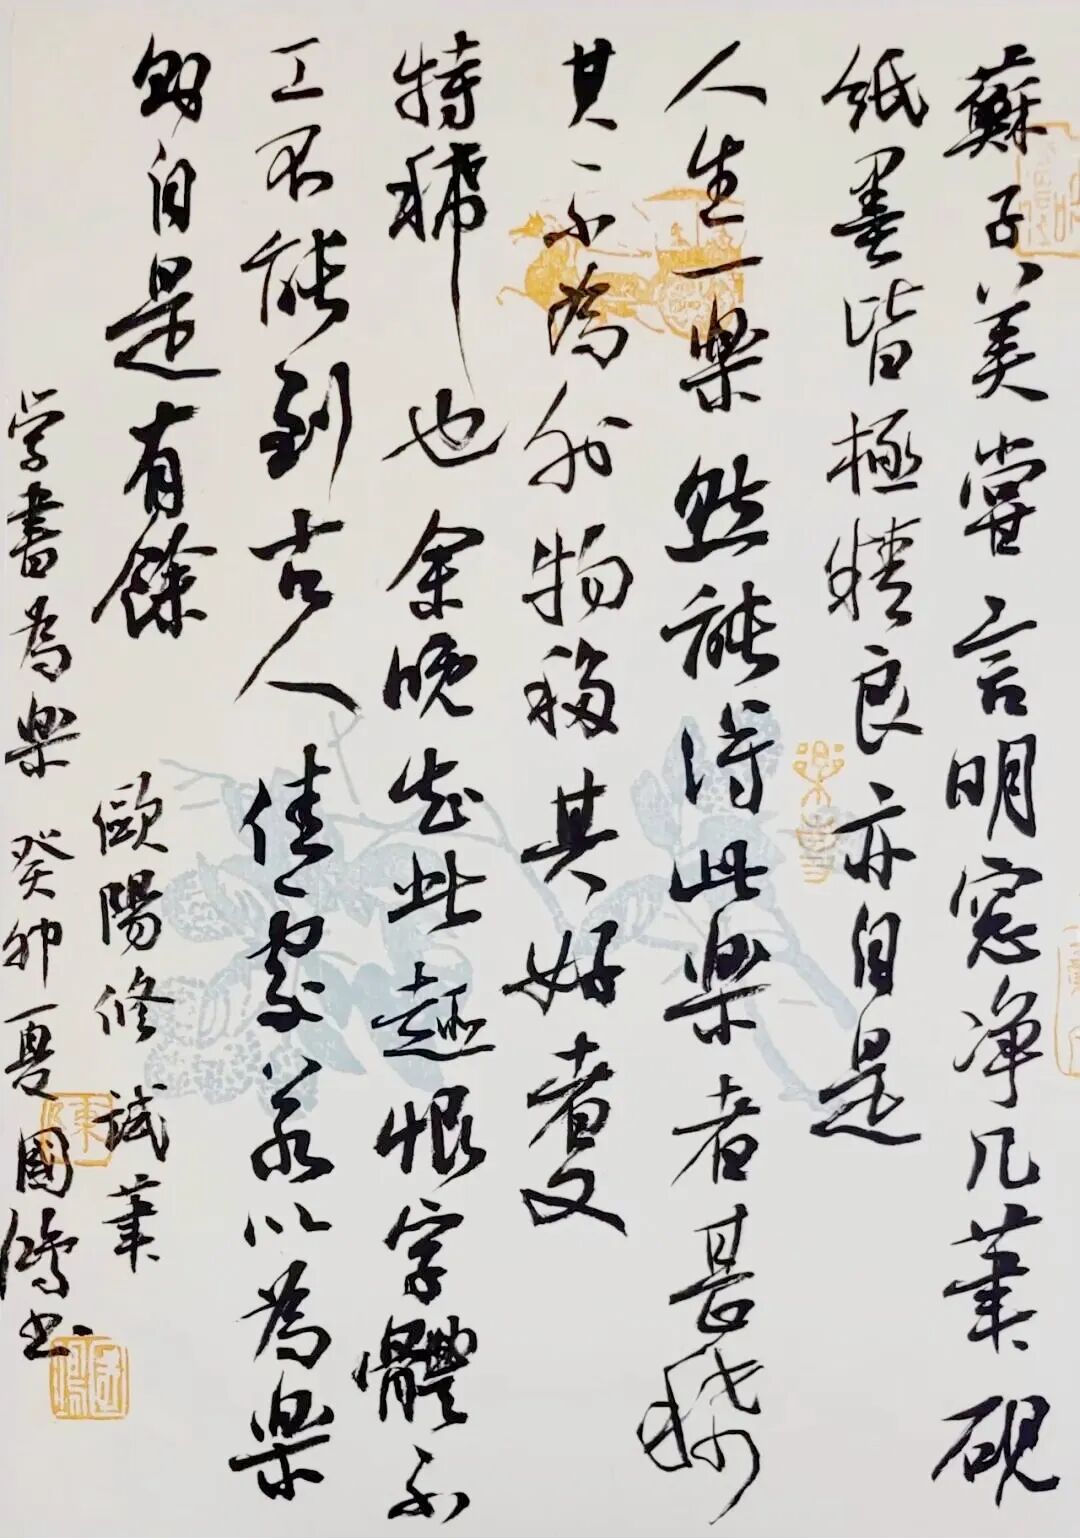 蘇子美嘗言明窓净几筆硯
紙墨皆極精良亦自是
人生一樂然能得此樂者甚稀
其不為外物移其好者又
特稀也余晚知此趣恨字體不
工不能到古人佳處若以為樂
則自是有餘
歐陽修試筆
学書為樂 癸卯夏國鴻书
陳